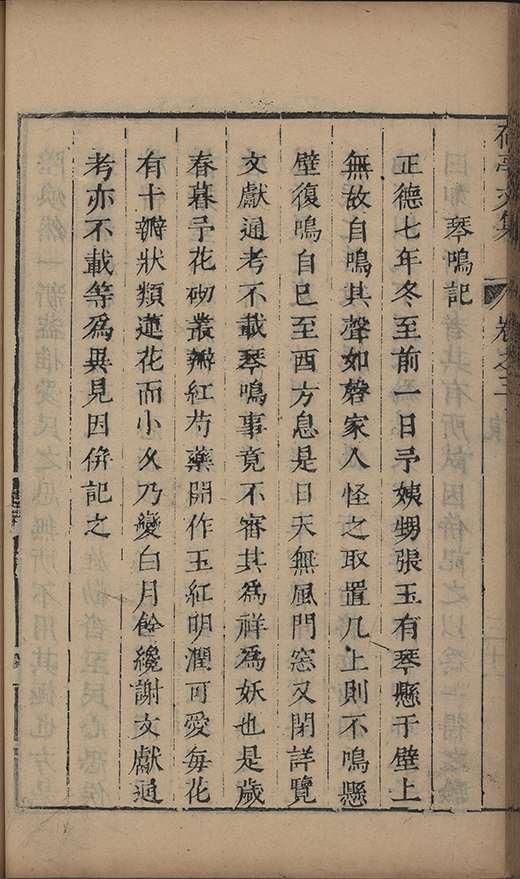 荷亭文集 卷之三
琴鳴記
正德七年冬至前一日予姨甥張玉有琴懸于壁上
無故自鳴其聲如磬家人怪之取置几上則不鳴懸
壁復鳴自巳至酉方息是日天無風門窓又閉詳覽
文獻通考不載琴鳴事竟不審其爲祥爲妖也是歲
春暮予花砌叢瓣紅芍藥開作玉紅明潤可愛每花
有十瓣狀類蓮花而小久乃變白月餘纔謝文獻通
考亦不載等爲異見因併記之